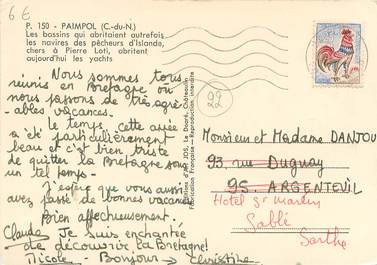 6€
P. 150 - PAIMPOL (C.-du-N.)
Les bassins qui abritaient autrefois
les navires des pêcheurs d'Islande,
chers à Pierre Loti, abritent
aujourd'hui les yachts
Nous sommes tous
réunis en Bretagne où
nous passons de très agré-
ables vacances.
Le temps, cette année
a été particulièrement
beau et c'est bien triste
de quitter la Bretagne sous
un tel temps -
J'espère que vous aussi
avez passé de bonnes vacances
Bien affectueusement.
Claude Je suis enchantée
de découvrir la Bretagne!
Nicole - Bonjour → Christine
Éditions d'Art JOS, Le Doaré, Châteaulin
Fabrication Française - Reproduction interdite
22
Monsieur et Madame DANJOU
93, rue Duguay
95. ARGENTEUIL
Hotel St Martin
Sablé
Sarthe